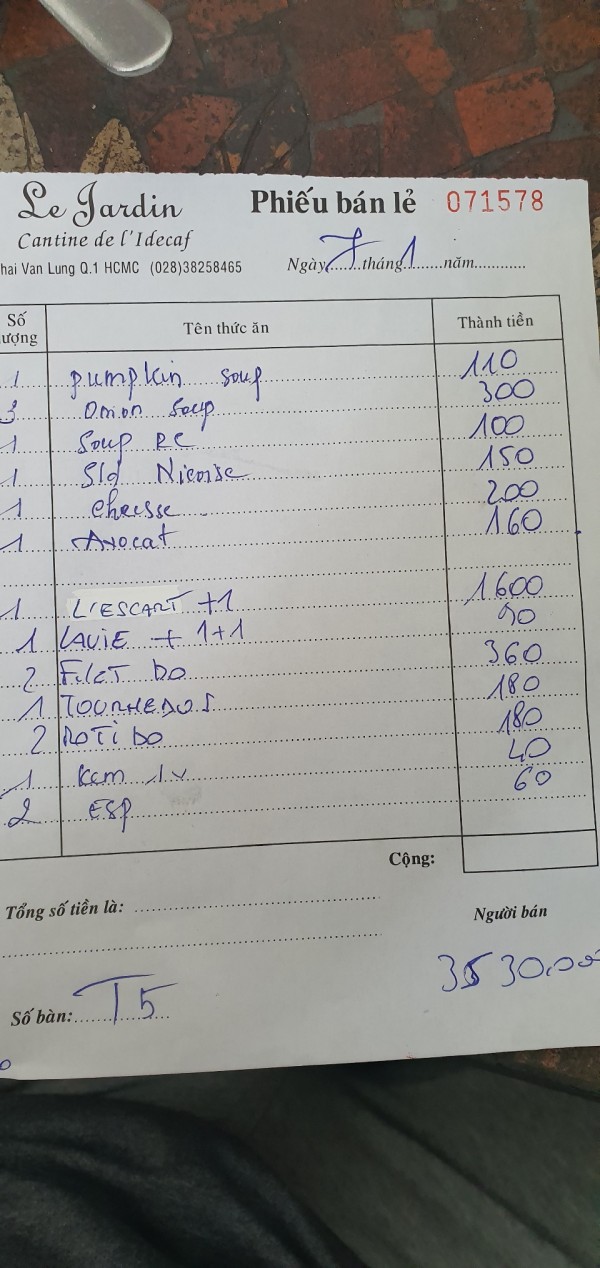 Le Jardin
Cantine de l'Idecaf
hai Van Lung Q.1 HCMC (028)38258465
Phiếu bán lẻ 071578
Ngày 7 tháng 1 năm
Số
ượng
Tên thức ăn
Thành tiền
1 pumpkin soup 110
3 Onion Soup 300
1 Soup RC 100
1 Sld Nicoise 150
1 Cheesse 200
1 Avocat 160
1 L'ESCART +1 1600
1 LAVIE + 1+1 90
2 FILET BO 360
1 TOURNEDOS 180
2 ROTI BO 180
1 Kem 1v 40
2 ESP 60
Cộng:
Tổng số tiền là:
Người bán
3530.000
Số bàn: T5